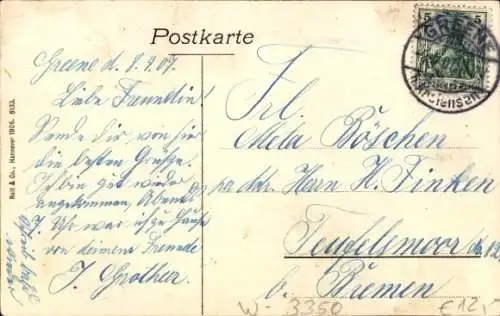 Postkarte
5 5
GREENE
Greene d. 8.9.07.
Liebe Freundin!
Sende dir von hier
die besten Grüße.
Ich bin gut wieder
angekommen, Abends
7. Uhr war ich zu Hause
von deinem Freunde
J. Grother.
Frl.
Meta Böschen
pa adr. Herrn H. Finken
Teufelsmoor
b. Bremen
Roll & Co., Hannover 1906. 5133.
W- 3350
€12,-